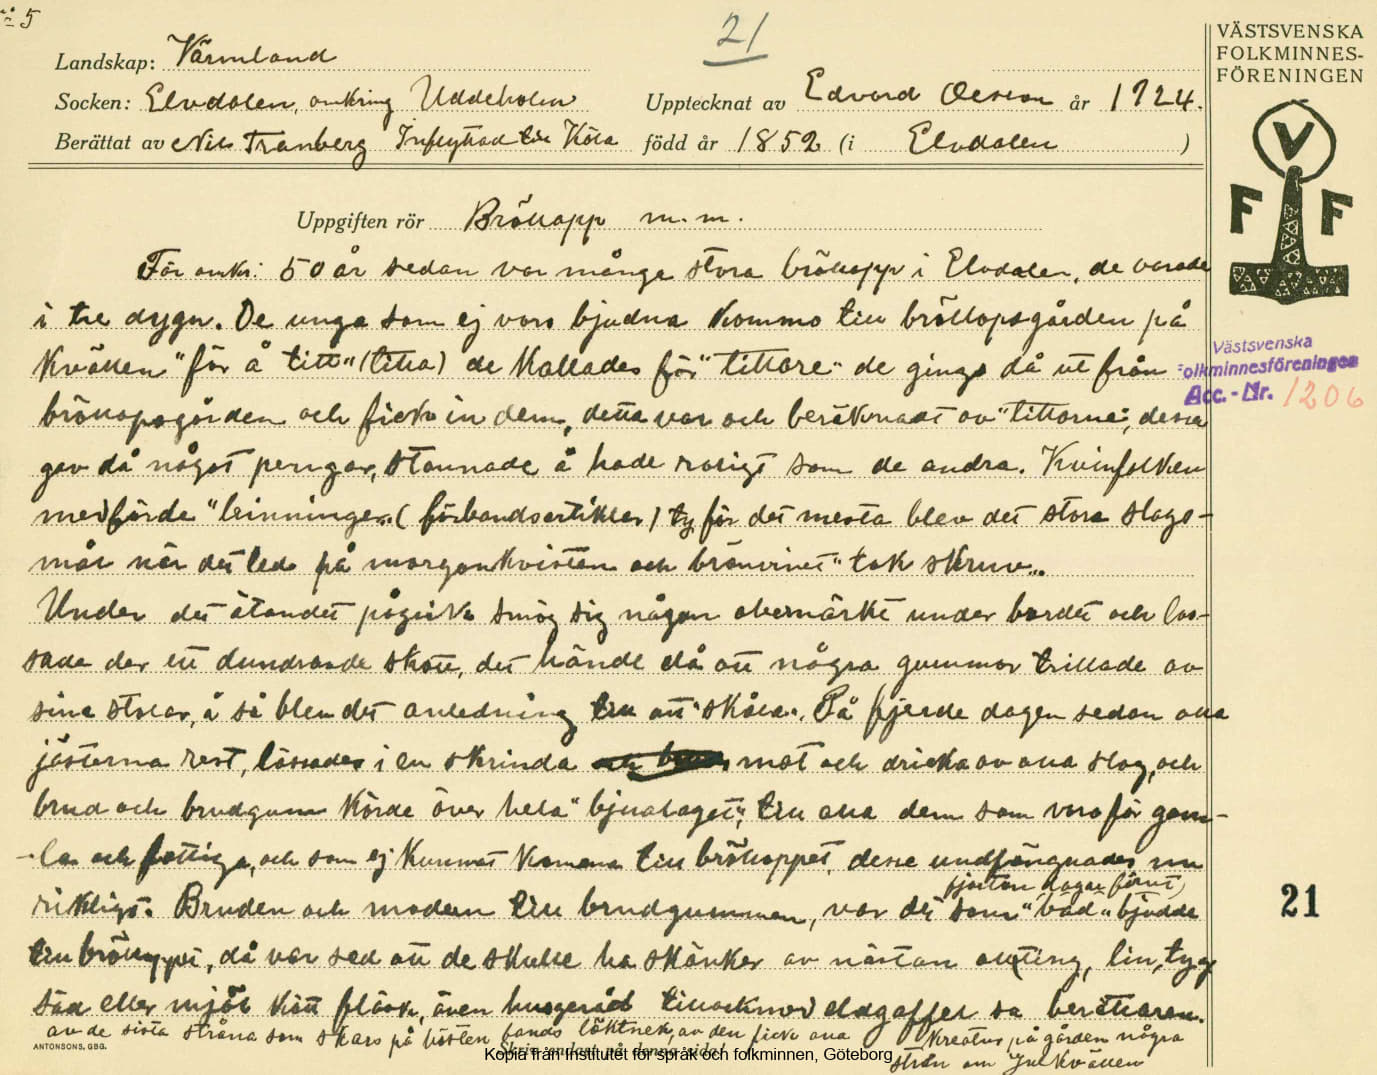 № 5
21
VÄSTSVENSKA
FOLKMINNES-
FÖRENINGEN
V
F F
Landskap: Värmland
Socken: Elvdalen, omkring Uddeholm Upptecknat av Edvard Olsson år 1924.
Berättat av Nils Tranberg Inflyttad till Köla född år 1852 (i Elvdalen )
Uppgiften rör Bröllopp m.m.
För omkr: 50 år sedan var många stora bröllopp i Elvdalen, de varade
i tre dygn. De unga som ej voro bjudna kommo till bröllopsgården på
kvällen "för å titt" (titta) de kallades för "tittare" de gingo då ut från
bröllopsgården och fick in dem, detta var och beräknadt av "tittarne", dessa
gav då något pengar, stannade å hade roligt som de andra. Kvinfolken
medförde "binninger" (förbandsartikler) ty för det mesta blev det stora slags-
mål när det led på morgonkvisten och brännvinet "tok skruv".
Under det ätandet pågick smög sig någon obemärkt under bordet och los-
sade der ett dundrande skott, det hände då att några gummor trillade av
sina stolar, å så blev det anledning till att "skåla". På fjerde dagen sedan alla
jästerna rest, lässades i en skrinda mat och dricka av alla slag, och
brud och brudgum körde över hela "bjualaget", till alla dem som voro för gam-
la och fattiga, och som ej kunnat komma till brölloppet, desse undfängnades nu
rikligt. Bruden och modern till brudgummen, var det som "bad" bjudde
fjorton dagar förut)
till brölloppet, då var sed att de skulle ha skänker av nästan allting, lin, tyg
säd eller mjöl kött fläsk, även husgeråd tillockmed dagaffel sa berättaren.
av de sista stråna som skars på hösten bands löktnek, av den fick alla kreatur på gården några
strån om Julkvällen
ANTONSONS, GBG.
Skriv endast på denna sida!
Kopia från Institutet för språk och folkminnen, Göteborg
Västsvenska
Folkminnesföreningen
Acc.-Nr. 1206
21